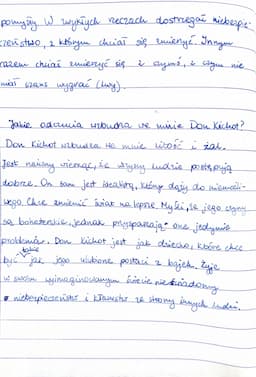 pomysły W zwykłych rzeczach dostrzegał niebezpie-
czeństwo, z którym chciał się zmierzyć Innym
razem chciał zmierzyć się z czymś, z czym nie
miał szans wygrać (lwy).
Jakie odczucia wzbudza we mnie Don Kichot?
Don Kichot wzbudza we mnie litość i żal.
Jest naiwny wierząc, że wszyscy ludzie postępują
dobrze. On sam jest idealistą, który dąży do niemożli-
wego. Chce zmienić świat na lepsze. Myśli, że jego czyny
są bohaterskie, jednak przysparzają one jedynie
problemów. Don Kichot jest jak dziecko, które chce
być takie jak jego ulubione postaci z bajek. Żyje
w swoim wyimaginowanym świecie nieświadomy
niebezpieczeństw i kłamstw ze strony innych ludzi.